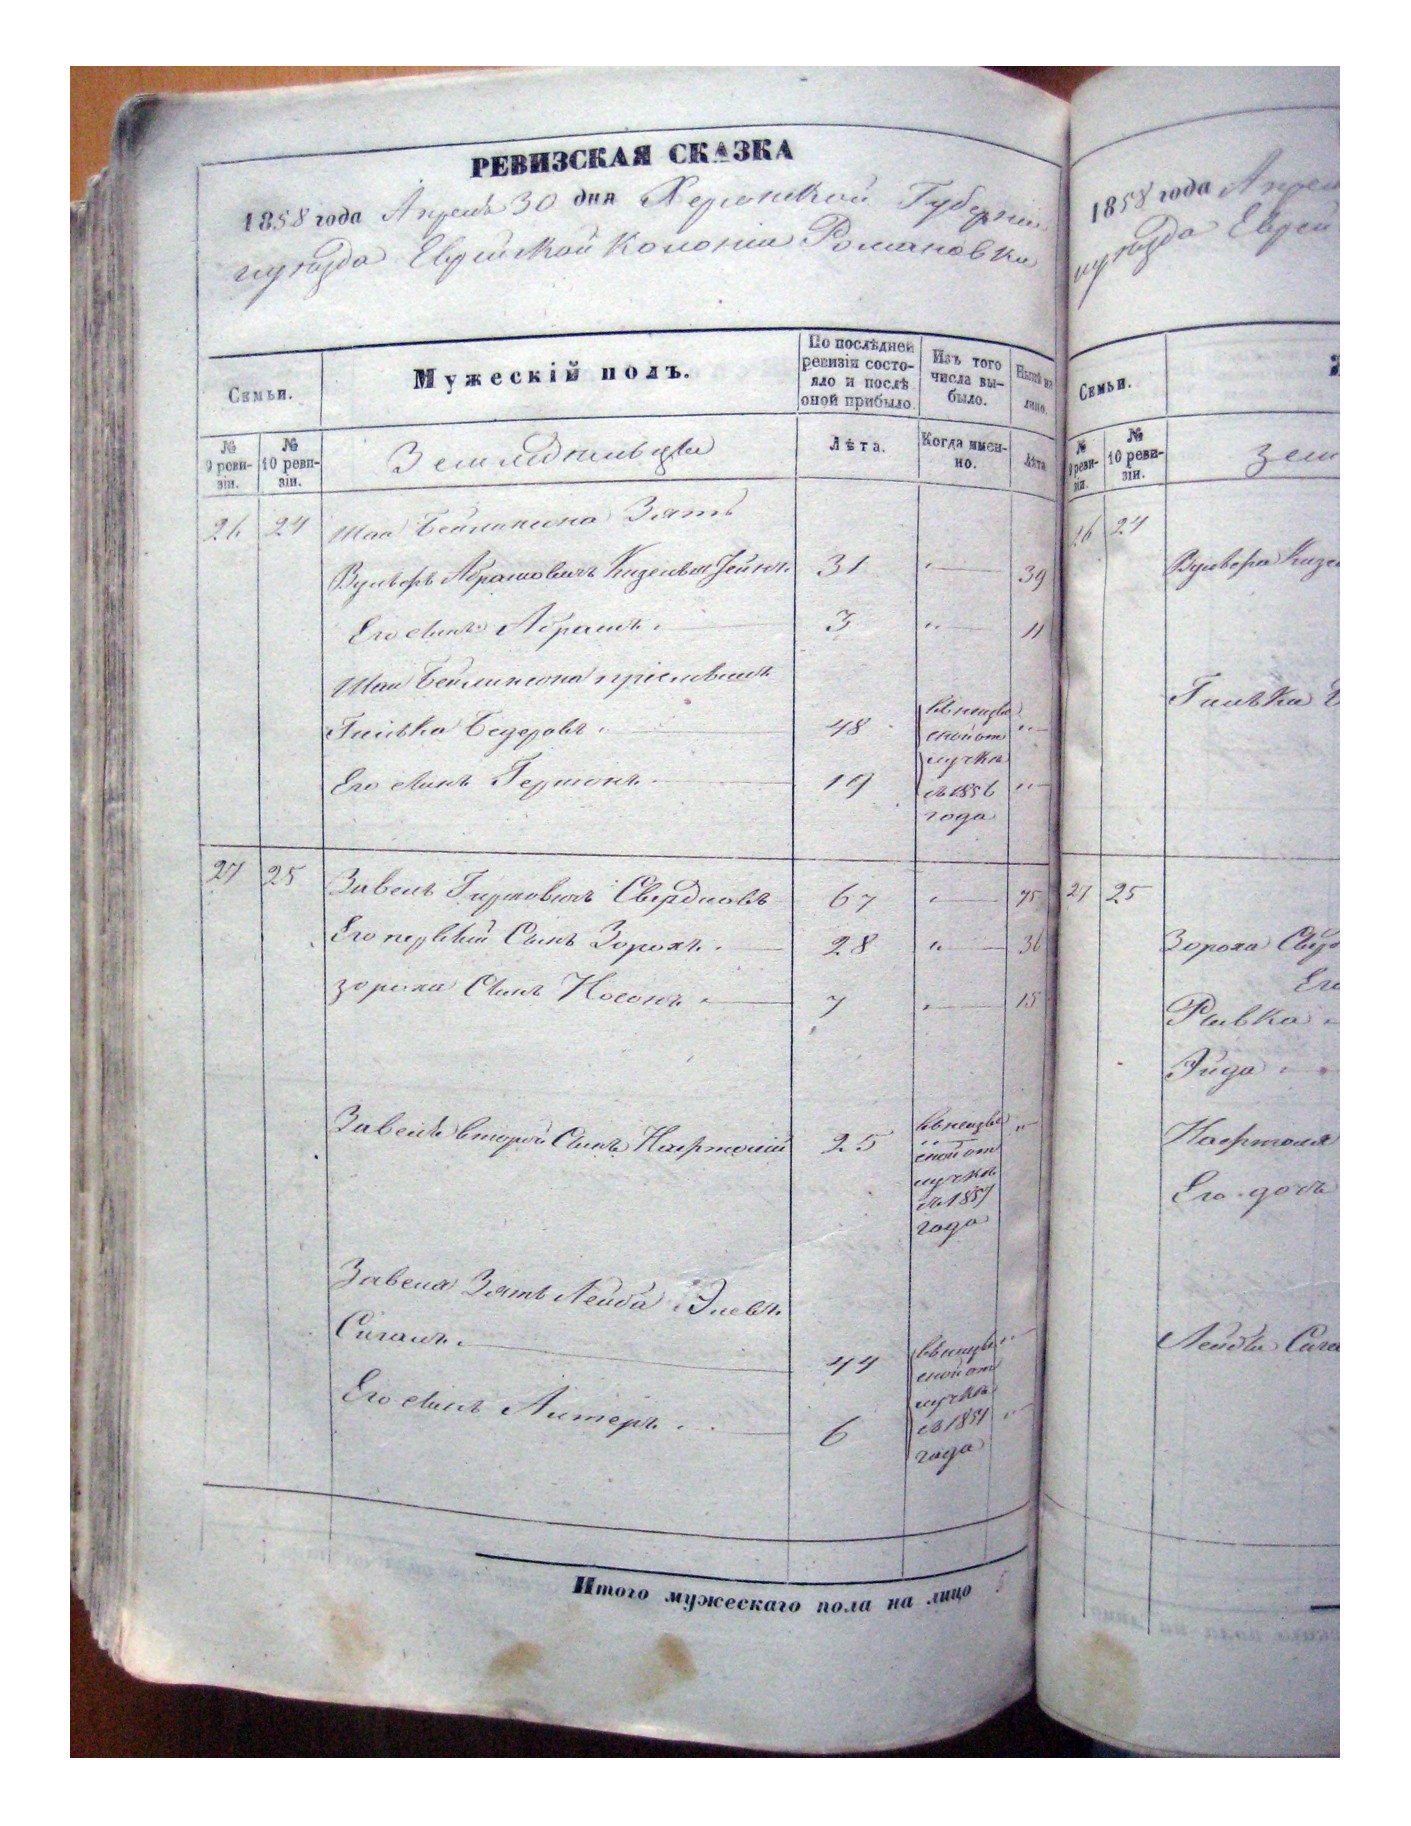 РЕВИЗСКАЯ СКАЗКА
1858 года Апреля 30 дня Херсонской Губерніи
и уезда Еврейской Колоніи Романовки
Семьи.
Мужескій полъ.
По послѣдней ревизіи состояло и послѣ оной прибыло.
Изъ того числа выбыло.
Нынѣ на лицо.
№ 9 ревизіи.
№ 10 ревизіи.
Земледельцы
Лѣта.
Когда именно.
Лѣта
26 24 Шаи Бейлинсона Зять
Вульфъ Абрамовичъ 31 " 39
Его сынъ Абрамъ. 3 " 11
Шаи Бейлинсона
48 "
Его сынъ 19 въ 1856 года "
27 25 Завель Гиршовичъ Свердловъ 67 " 75
Его первый Сынъ Зорохъ. 28 " 36
Зороха Сынъ Носонъ 7 " 15
Завеля второй Сынъ Нафтолій 25 въ неизвѣстной отлучкѣ съ 1857 года "
Завеля Зять Лейба
Сигалъ. 44 въ неизвѣстной отлучкѣ съ 1857 года "
Его сынъ Алтеръ. 6 "
Итого мужескаго пола на лицо 5
1858 года Апреля
и уезда Еврей
Семьи.
№ 9 ревизіи.
№ 10 ревизіи.
Зем
26 24
Вульфа Кизе
27 25
Зороха Свер
Его
Рывка
Эйда
Нафтолія
Его дочь
Лейбы Сига